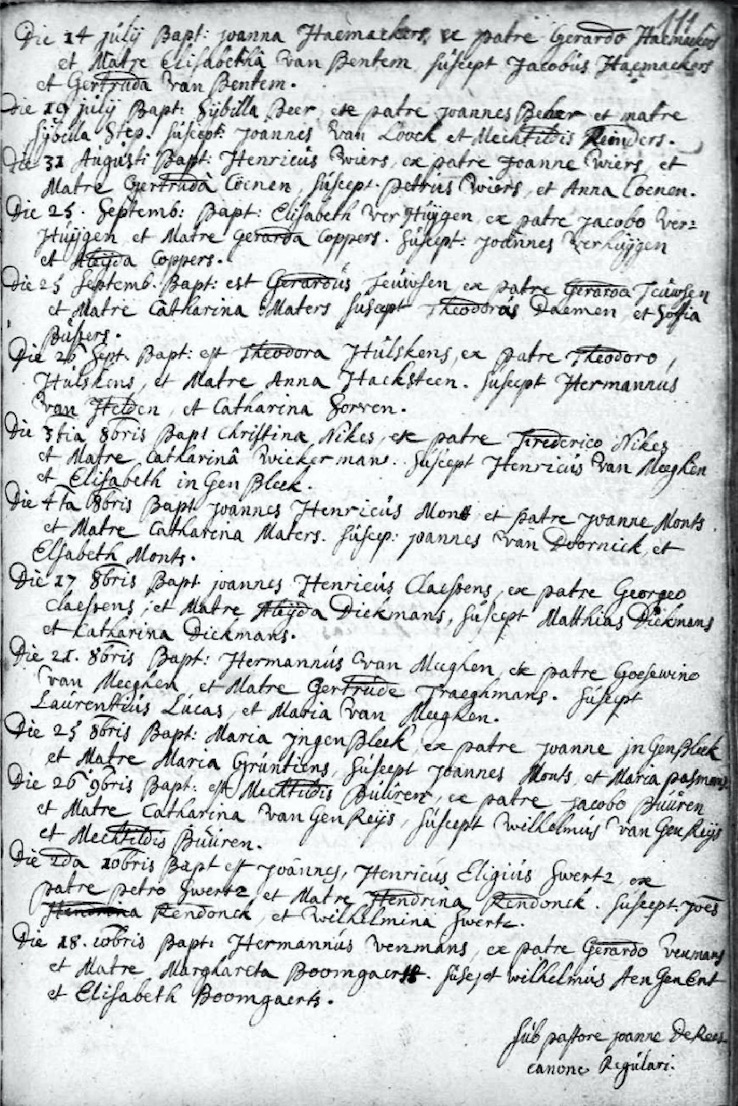 111
Die 14 julÿ Bapt: joanna Haemackers, ex patre Gerardo Haemackers
et Matre Elisabetha van Bentem suscept Jacobus Haemackers
et Gertruda van Bentem.
Die 19 julÿ Bapt: Sÿbilla Beer, ex patre joannes Beker et matre
Sÿbilla Step. suscept: joannes van Loock et Mechtildis Reinders.
Die 31 Augusti Bapt: Henricus Wiers, ex patre Joanne Wiers et
Matre Gertruda Coenen, suscept. petrus Wiers, et Anna Coenen.
Die 25. Septemb: Bapt: Elisabeth Ver Huÿgen, ex patre jacobo Ver-
Huÿgen et Matre Gerarda Coppers. Suscept: joannes Verhuÿgen
et Aleÿda Coppers.
Die 25 Septemb. Bapt: est Gerardus Teuwsen, ex patre Gerardo Teuwsen
et Matre Catharina Maters suscept Theodorus Daemen et Soffia
Bussers.
Die 26 Sept. Bapt: est Theodora Hulskens, ex patre Theodoro,
Hulskens, et Matre Anna Hacksteen. suscept Hermannus
van Helden, et Catharina Sorren.
Die 3tia 8bris Bapt Christina Nikes, ex patre Frederico Nikes
et Matre Catharina Wickermans. Suscept Henricus van Meeghen
et Elisabeth in Gen Bleek.
Die 4ta 8bris Bapt joannes Henricus Monts et patre joanne Monts.
et Matre Catharina Maters. suscep: joannes van Doornick, et
Elsabeth Monts.
Die 17 8bris Bapt joannes Henricus Claessens, ex patre Georgeo
Claessens, et Matre Aleÿda Dickmans, suscept Matthias Dickmans
et Catharina Dickmans.
Die 21. 8bris Bapt: Hermannus van Meeghen, ex patre Goesewino
van Meeghen, et Matre Gertrude Traeghmans. suscept
Laurentius Lucas, et Maria van Meeghen.
Die 25 8bris Bapt: Maria jngenBleek, ex patre joanne jn Gen Bleek
et Matre Maria Gruntiens, suscept joannes Monts, et Maria pasmans
Die 26 9bris Bapt: est Mechtildis Buüren, ex patre jacobo Buüren
et Matre Catharina van Gen Reÿs, suscept Wilhelmus van Gen Reÿs
et Mechtildis Buüren.
Die 2da 10bris Bapt est joannes, Henricus Eligius Swertz, ex
patre petro Swertz et Matre Hendrina Rendonck. suscept: joes
Hendrina Rendonck, et Wilhelmina Swertz.
Die 18. 10bris Bapt: Hermannus Venmans, ex patre Gerardo Venmans
et Matre Marghareta Boomgaerts. suscept wilhelmus Aen Gen Ent
et Elisabeth Boomgaerts.
sub pastore joanne De Rees
canone Regulari.